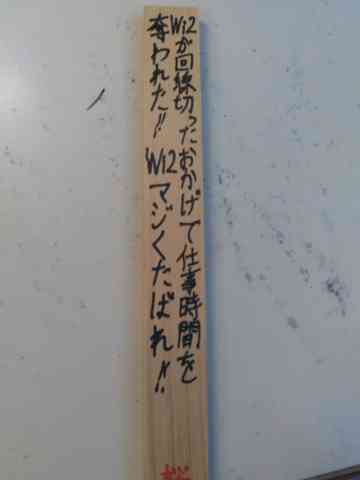 Wi2が回線切ったおかげで仕事時間を
奪われた!! Wi2マジくたばれ!!